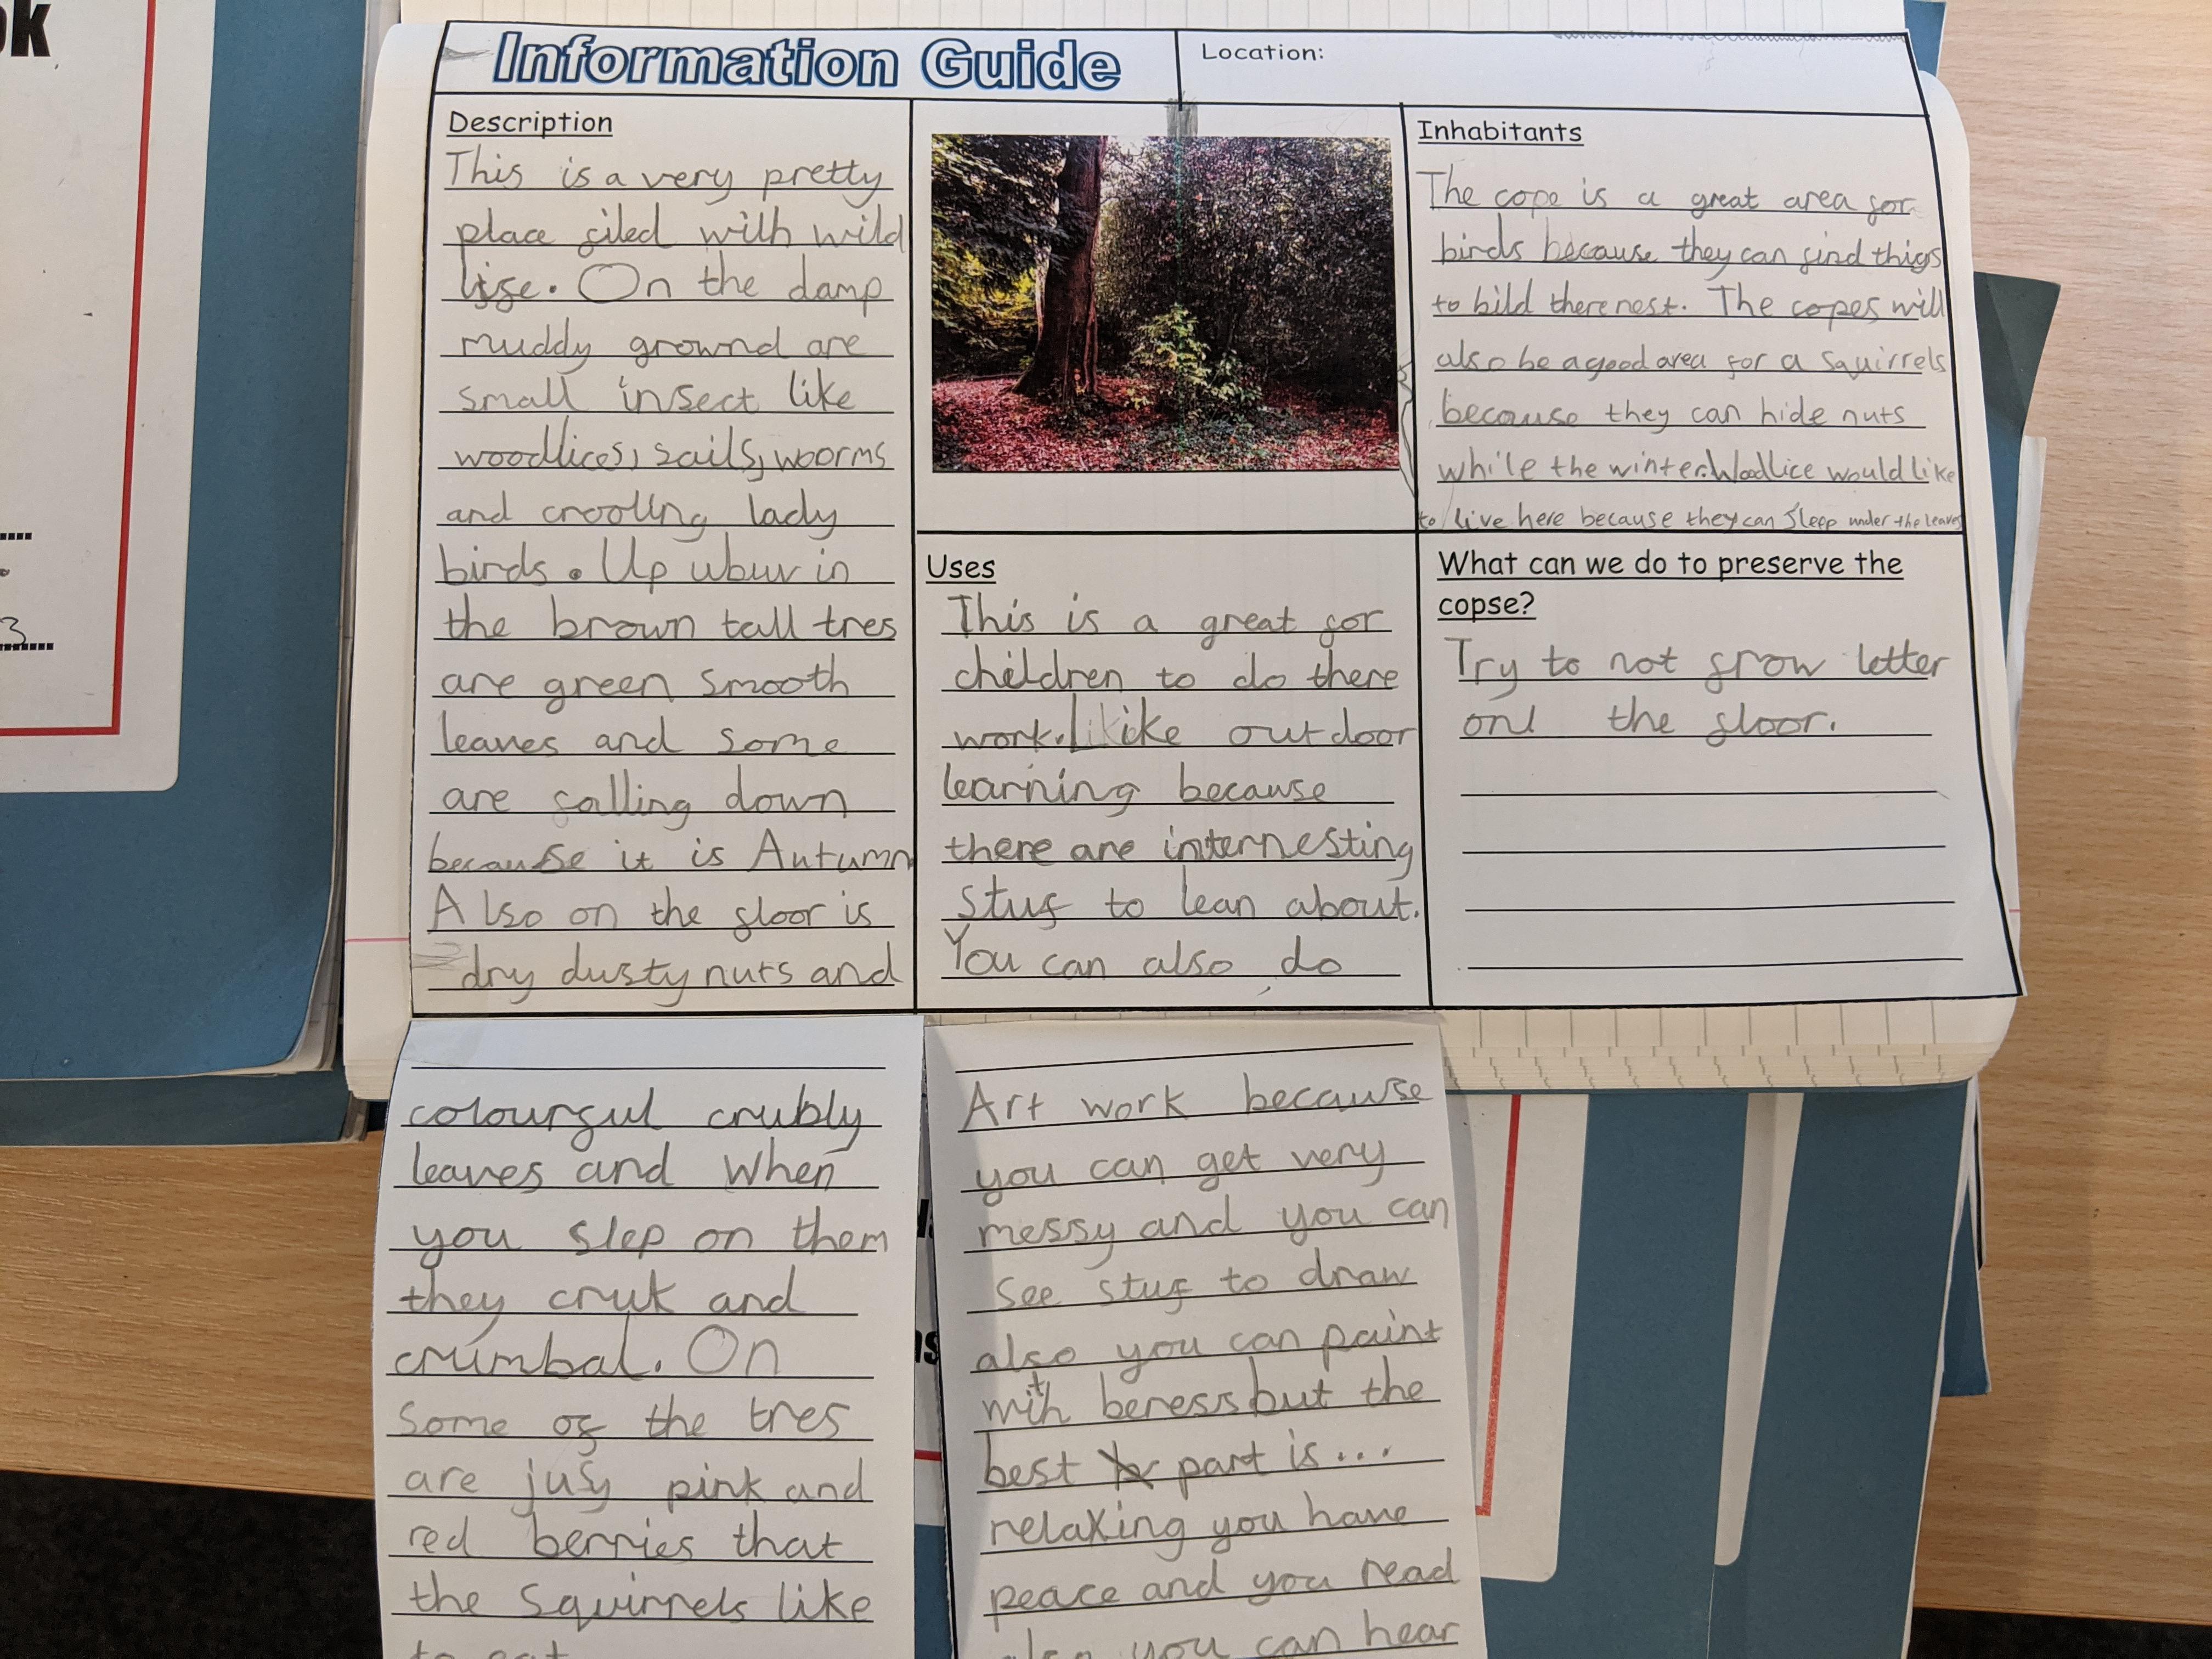 ok
3
Information Guide
Location:
Description
This is a very pretty
place filed with wild
life. On the damp
muddy grownd are
small insect like
woodlices, sails, woorms
and crooling lady
birds. Up in
the brown tall tres
are green smooth
leaves and some
are falling down
because it is Autumn
Also on the floor is
dry dusty nuts and
colourful crubly
leaves and when
you step on them
they cruk and
crumbal. On
some of the tres
are jusy pink and
red berries that
the squirrels like
to eat
Uses
This is a great for
children to do there
work. Like outdoor
learning because
there are internesting
stuf to lean about.
You can also do
Art work because
you can get very
messy and you can
see stuf to draw
also you can paint
with beress but the
best part is...
relaxing you have
peace and you read
also you can hear
Inhabitants
The cope is a great area for
birds because they can find thigs
to bild there nest. The copes will
also be a good area for a squirrels
because they can hide nuts
while the winter. Woodlice would like
to live here because they can sleep under the leaves
What can we do to preserve the
copse?
Try to not frow letter
on the floor.